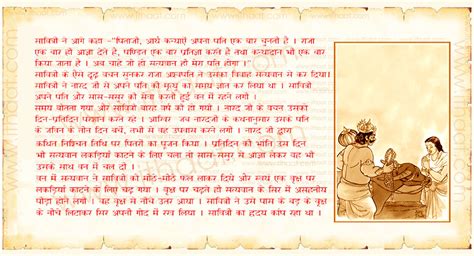 सावित्री ने आगे कहा -"पिताजी, आर्य कन्याएँ अपना पति एक बार चुनती हैं । राजा
एक बार ही आज्ञा देते है, पण्डित एक बार प्रतिज्ञा करते है तथा कन्यादान भी एक बार
किया जाता है । अब चाहे जो हो सत्यवान ही मेरा पति होगा ।"
सावित्री के ऐसे दृढ़ वचन सुनकर राजा अश्वपति ने उसका विवाह सत्यवान से कर दिया।
सावित्री ने नारद जी से अपने पति की मृत्यु का समय ज्ञान कर लिया था । सावित्री
अपने पति और सास-ससुर की सेवा करती हुई वन में रहने लगी ।
समय बीतता गया और सावित्री बारह वर्ष की हो गयी । नारद जी के वचन उसको
दिन-प्रतिदिन परेशान करते रहे । आखिर जब नारदजी के कथनानुसार उसके पति
के जीवन के तीन दिन बचें, तभी से वह उपवास करने लगी । नारद जी द्वारा
कथित निश्चित तिथि पर पितरों का पूजन किया । प्रतिदिन की भांति, उस दिन
भी सत्यवान लकड़ियां काटने के लिए चला तो सास-ससुर से आज्ञा लेकर वह भी
उसके साथ वन में चल दी ।
वन में सत्यवान ने सावित्री को मीठे-मीठे फल लाकर दिये और स्वयं एक वृक्ष पर
लकड़ियां काटने के लिए चढ़ गया । वृक्ष पर चढ़ते ही सत्यवान के सिर में असहनीय
पीड़ा होने लगी । वह वृक्ष से नीचे उतर आया । सावित्री ने उसे पास के बड़ के वृक्ष
के नीचे लिटाकर सिर अपनी गोद में रख लिया । सावित्री का हृदय कांप रहा था ।